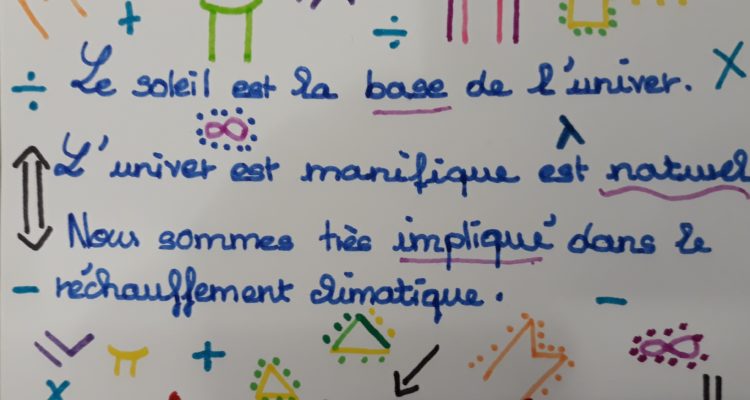 Le soleil est la base de l'univer.
L'univer est manifique est naturel
Nous sommes très impliqué dans le
réchauffement climatique.